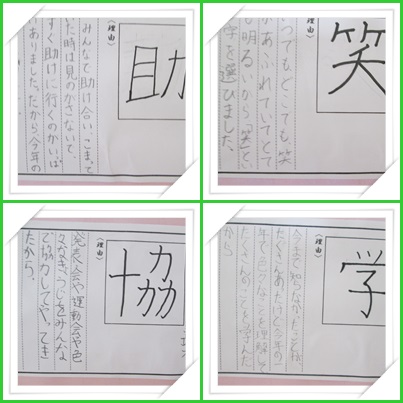 助
(理由)
みんなで助け合い、こまって
た時は見のがさないで、
すぐ助けに行くのがいっぱ
ありました。だから今年の
笑
(理由)
つでもどこでも、笑
があふれていてとて
も明るいから「笑」とい
字を選びました。
協
(理由)
発表会や運動会や色
で協力してやってき
たから。
学
(理由)
たくさんあったけど今年の一
年で色々なことを理解して
たくさんのことを学んだ
から